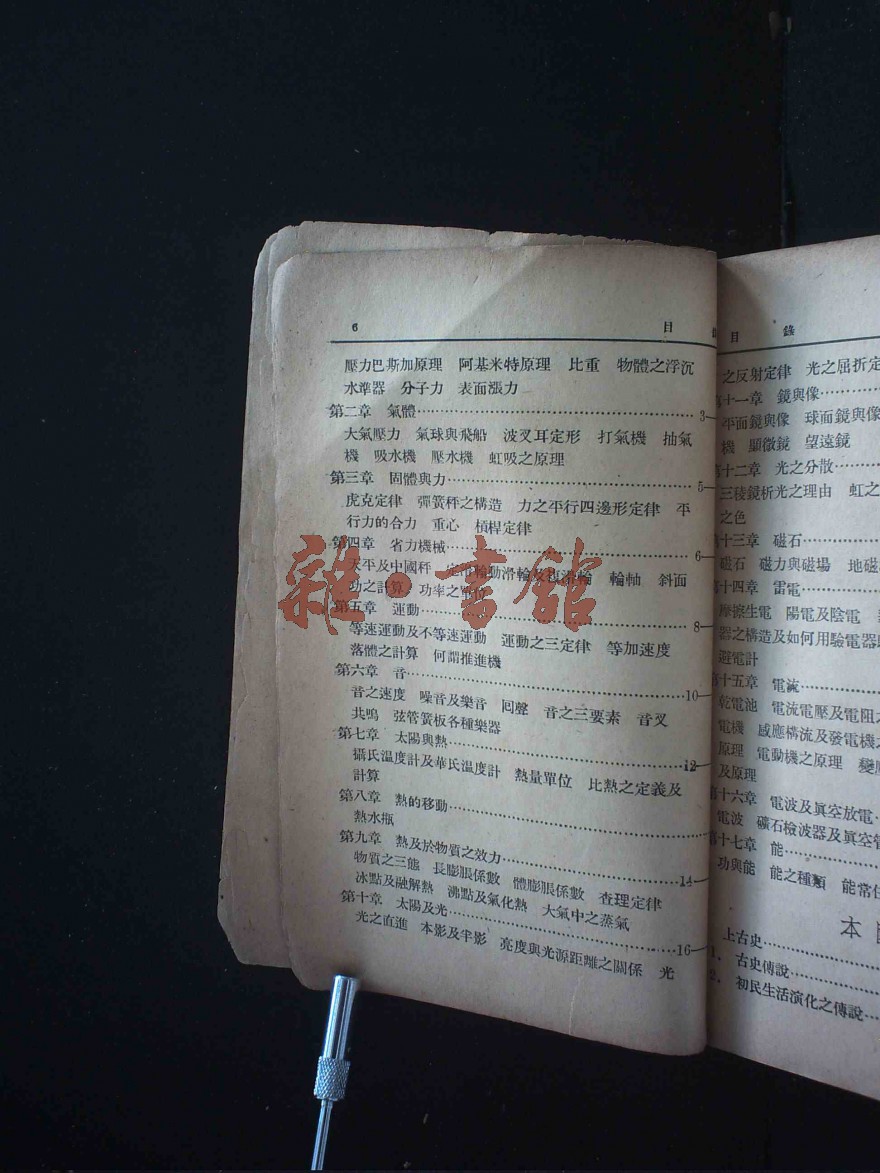 6 目
壓力巴斯加原理 阿基米特原理 比重 物體之浮沉
水準器 分子力 表面漲力
第二章 氣體……3—
大氣壓力 氣球與飛船 波叉耳定形 打氣機 抽氣
機 吸水機 壓水機 虹吸之原理
第三章 固體與力……5—
虎克定律 彈簧秤之構造 力之平行四邊形定律 平
行力的合力 重心 槓桿定律
第四章 省力機械……6—
天平及中國秤 定滑輪動滑輪及複滑輪 輪軸 斜面
功之計算 功率之單位
第五章 運動……8—
等速運動及不等速運動 運動之三定律 等加速度
落體之計算 何謂推進機
第六章 音……10—
音之速度 噪音及樂音 回聲 音之三要素 音叉
共鳴 弦管簧板各種樂器
第七章 太陽與熱……12—
攝氏温度計及華氏温度計 熱量單位 比熱之定義及
計算
第八章 熱的移動……
熱水瓶
第九章 熱及於物質之效力……14—
物質之三態 長膨脹係數 體膨脹係數 查理定律
冰點及融解熱 沸點及氣化熱 大氣中之蒸氣
第十章 太陽及光……16—
光之直進 本影及半影 亮度與光源距離之關係 光
目 錄
之反射定律 光之屈折定
第十一章 鏡與像……
平面鏡與像 球面鏡與像
機 顯微鏡 望遠鏡
第十二章 光之分散……
三稜鏡析光之理由 虹之
之色
第十三章 磁石……
磁石 磁力與磁場 地磁
第十四章 雷電……
摩擦生電 陽電及陰電
器之構造及如何用驗電器
避電計
第十五章 電流……
乾電池 電流電壓及電阻之
電機 感應構流及發電機之
原理 電動機之原理 變
及原理
第十六章 電波及眞空放電……
電波 礦石檢波器及眞空管
第十七章 能……
功與能 能之種類 能常住
本
上古史……
1. 古史傳說……
2. 初民生活演化之傳說……
雜·書館